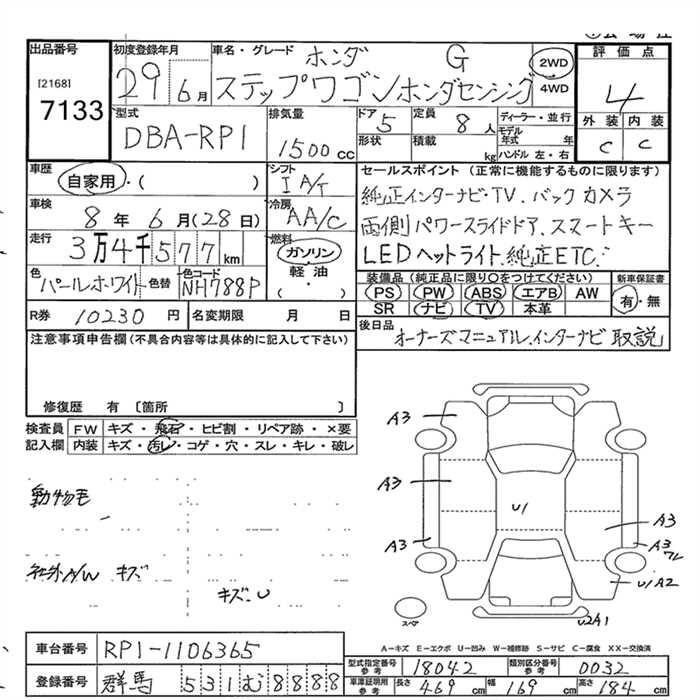 出品番号
[2168]
7133
初度登録年月
29 6月
車名・グレード
ホンダ G
ステップワゴンホンダセンシング
2WD
4WD
評価点
4
外装 内装
C C
型式
DBA-RP1
排気量
1500cc
ドア 5
形状
定員 8人
積載 kg
ディーラー・並行
モデル年式 年
ハンドル 左・右
車歴
自家用・( )
シフト
IA/T
車検
8年6月(28日)
冷房
AA/C
走行
3万4千577km
燃料
ガソリン
軽・油
・( )
色
パールホワイト
色替
色コード
NH788P
セールスポイント (正常に機能するものに限ります)
純正インターナビ・TV. バックカメラ
両側パワースライドドア.スマートキー
LEDヘッドライト.純正ETC.
装備品 (純正品に限り○をつけてください)
PS PW ABS エアB AW
SR ナビ TV 本革
新車保証書
有・無
R券 10230円
名変期限 月 日
後日品
オーナーズマニュアル.インターナビ取説
注意事項申告欄(不具合内容等は具体的に記入して下さい)
修復歴 有 〔箇所 〕
検査員記入欄
FW キズ・飛石・ヒビ割・リペア跡・×要
内装 キズ・汚レ・コゲ・穴・スレ・キレ・破レ
動物毛
社外A/W キズ
キズ.U
A3
A3
A3
U1
A3
A3
ワレ
U1A2
U2A1
スペア
A-キズ E-エクボ U-凹み W-補修跡 S-サビ C-腐食 XX-交換済
車台番号
RP1-1106365
登録番号
群馬 531む8888
型式指定番号 参考
18042
類別区分番号 参考
0032
車庫証明用 参考
長さ 469cm 幅 169cm 高さ 184cm